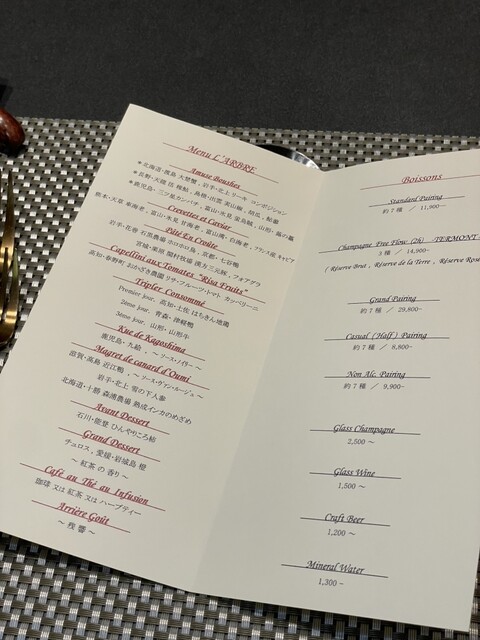 Menu L'ARBRE
Amuse Boushes
Crevettes et Caviar
Pâté En Croûte
Capellini aux Tomates "Risa Fruits"
宮城・栗原 関村牧場 漢方三元豚, フォアグラ
高知・春野町 おかざき農園 リサ・フルーツ・トマト カッペリーニ
Tripler Consommé
Premier jour, 高知・土佐 はちきん地鶏
2ème jour, 青森・津軽鴨
3ème jour, 山形・山形牛
Kue de Kagoshima
鹿児島・九絵 , ～ ソース・ノイリー ～
Magret de canard d'Oumi
滋賀・高島 近江鴨 , ～ ソース・ヴァン・ルージュ ～
岩手・北上 雪の下人参
北海道・十勝 森浦農場 熟成インカのめざめ
Avant Dessert
石川・能登 ひんやりころ鮎
Grand Dessert
チュロス , 愛媛・岩城島 橙
～ 紅茶 の 香り ～
Café au Thé au Infusion
珈琲 又は 紅茶 又は ハーブティー
Arrière Goût
～ 残 響 ～
Boissons
Standard Pairing
約 7 種 ／ 11,900~
Champagne Free Flow (2h) -TERMONT-
3 種 ／ 14,900~
( Réserve Brut , Réserve de la Terre , Réserve Rosé
Grand Pairing
約 7 種 ／ 29,800~
Casual (Half) Pairing
約 7 種 ／ 8,800~
Non Alc. Pairing
約 7 種 ／ 9,900~
Glass Champagne
2,500 ～
Glass Wine
1,500 ～
Craft Beer
1,200 ～
Mineral Water
1,300 ~